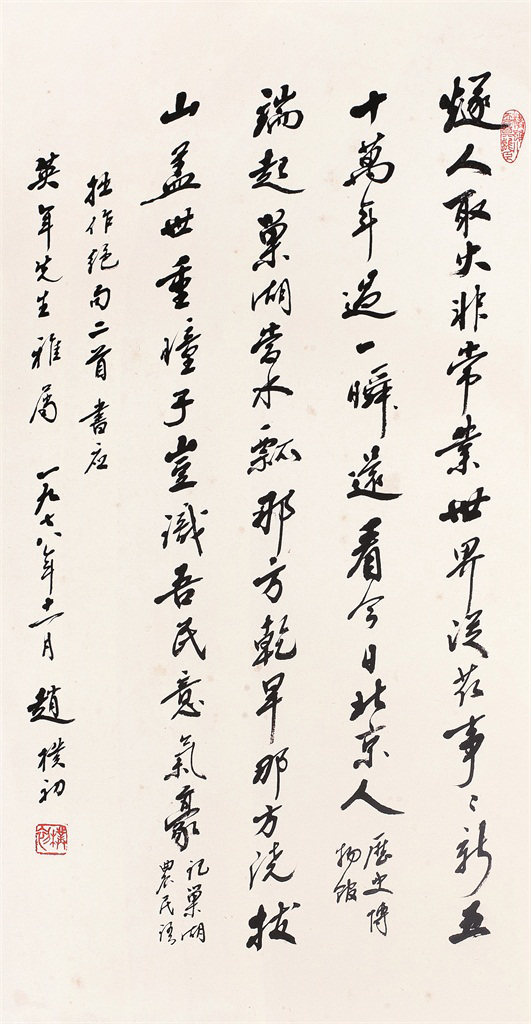 燧人取火非常業世界從茲事〻新五
十萬年過一瞬還看今日北京人
歷史博
物館
端起巢湖當水瓢那方乾旱那方澆拔
山蓋世重瞳子豈識吾民意氣豪
記巢湖
農民語
拙作絕句二首書應
英年先生雅屬 一九七八年十一月 趙樸初
樸初